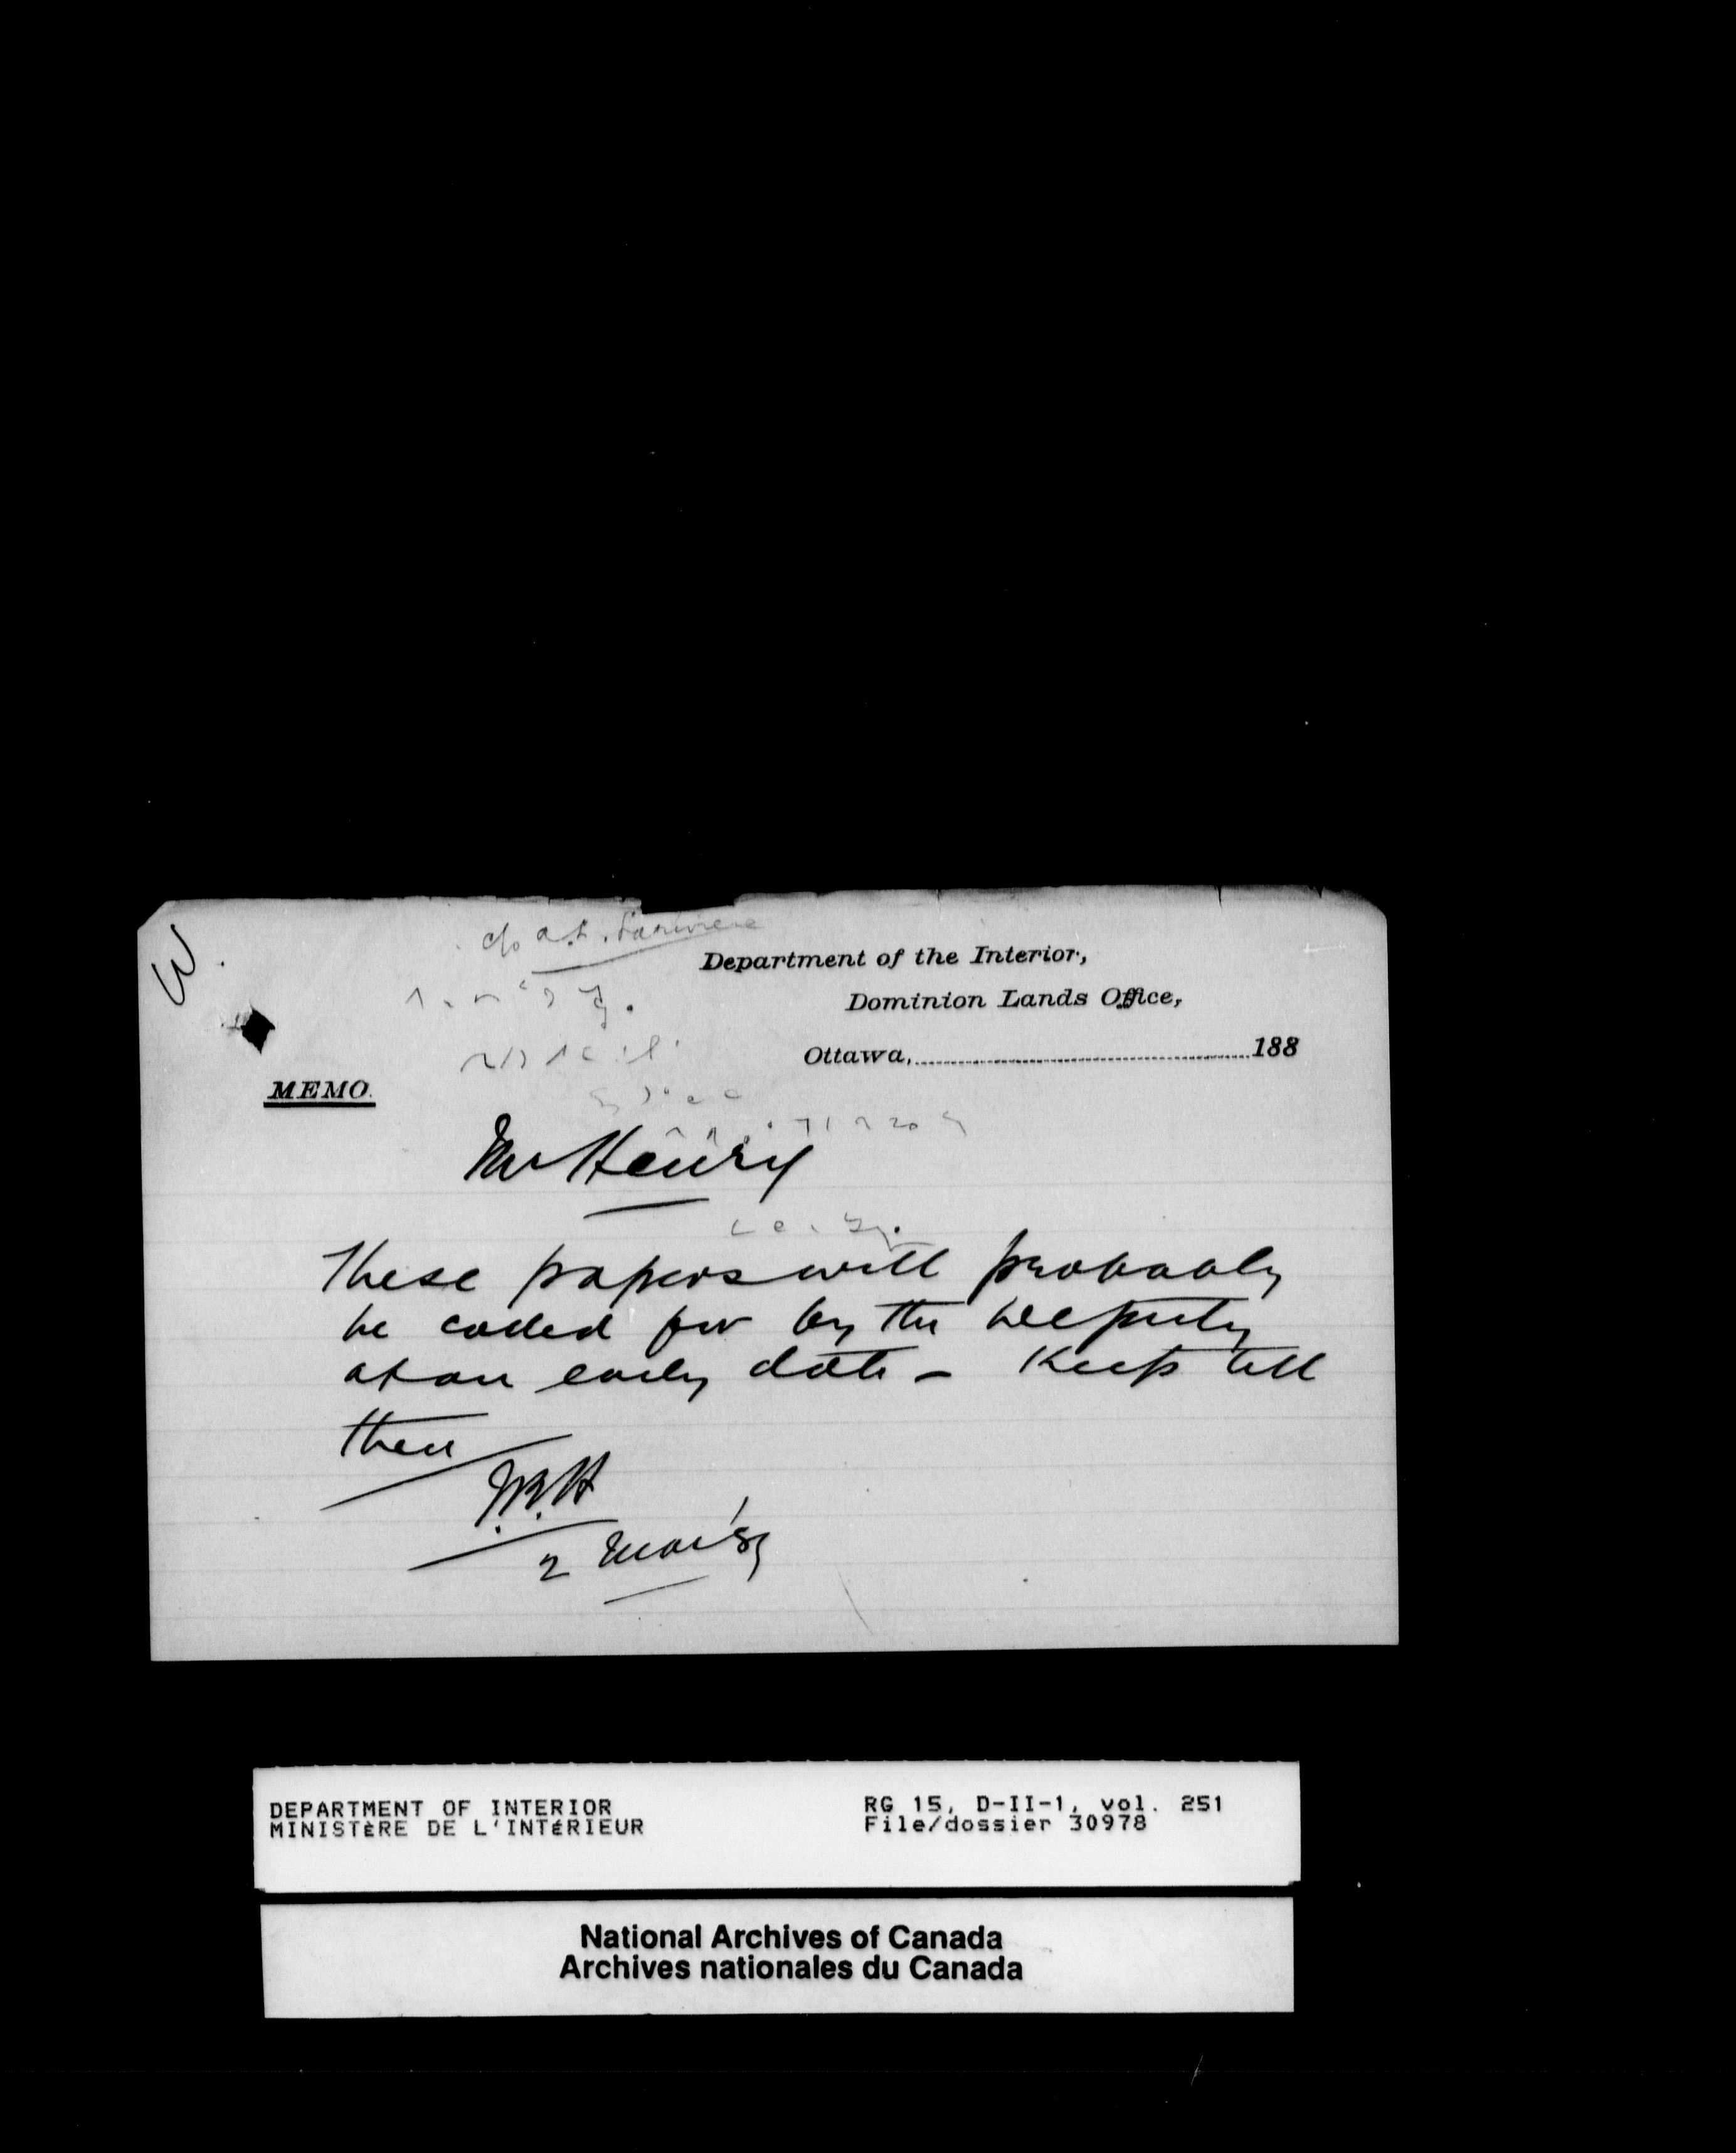 W.
c/o A.
Department of the Interior,
Dominion Lands Office,
Ottawa, 188
MEMO.
Mr Henry
These papers will probably
be called for by the Deputy
at an early date - Keep till
then
2 Mar
DEPARTMENT OF INTERIOR
MINISTÈRE DE L'INTÉRIEUR
RG 15, D-II-1, vol. 251
File/dossier 30978
National Archives of Canada
Archives nationales du Canada